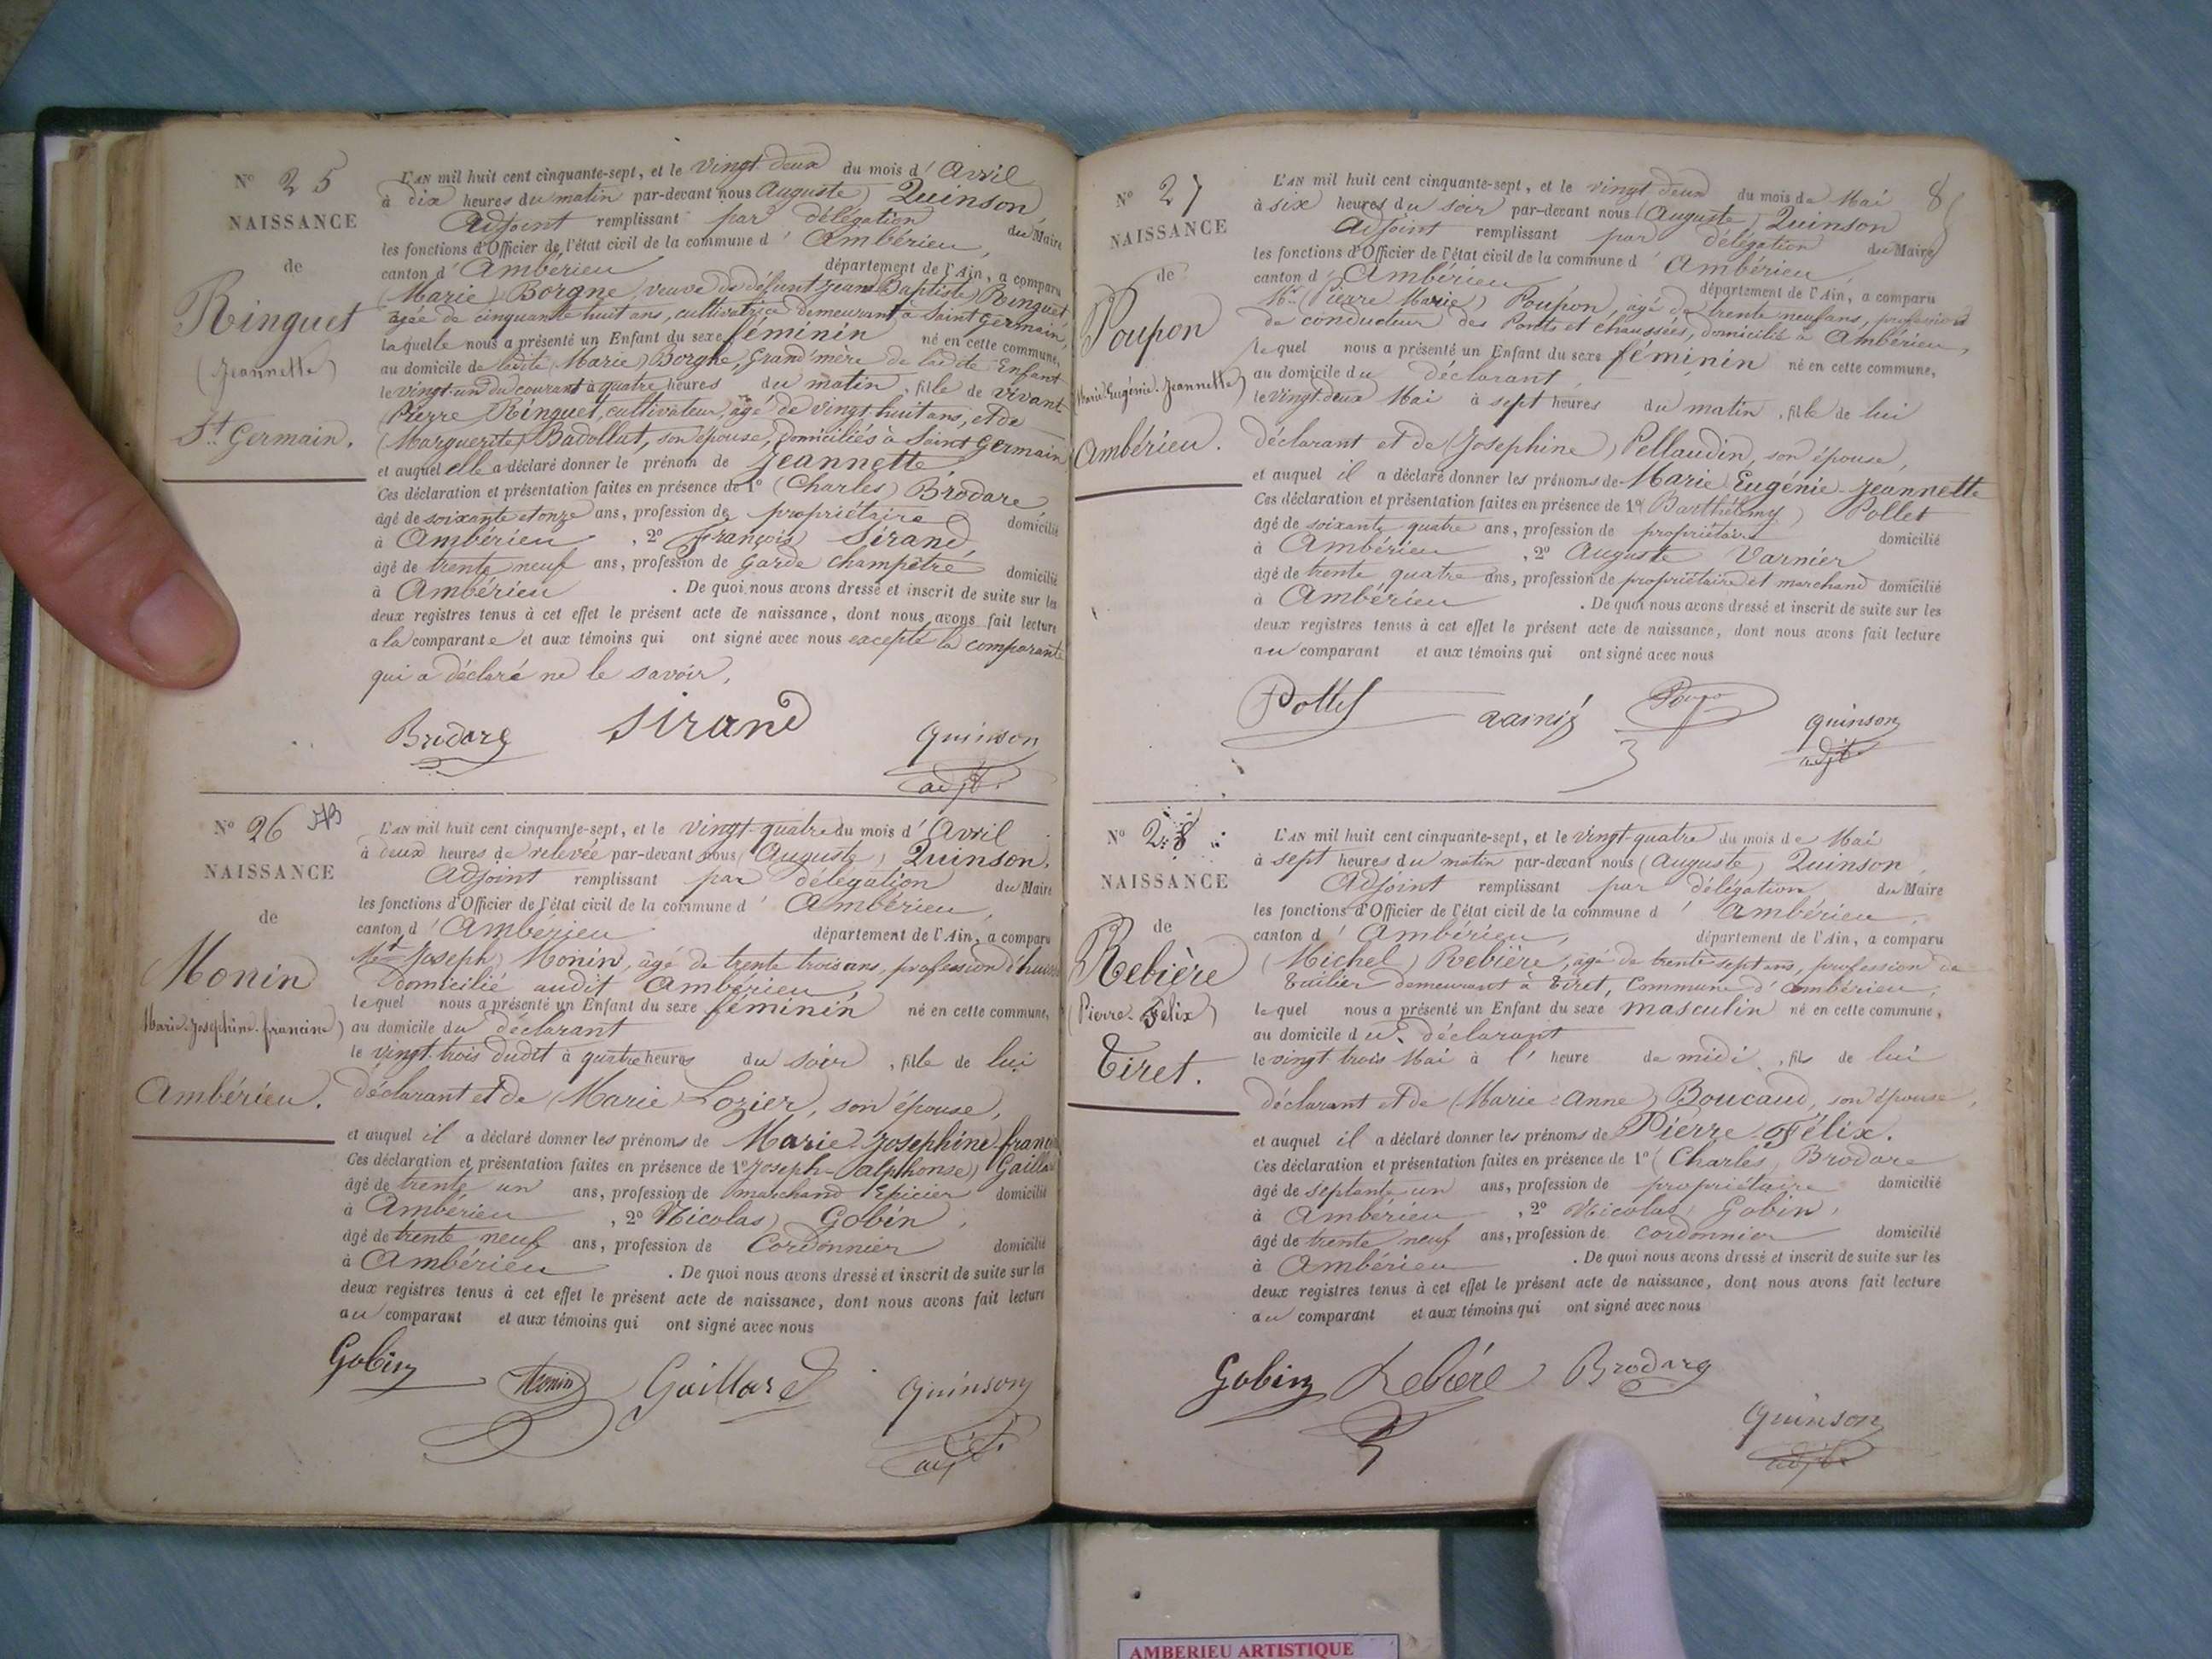 N° 25
NAISSANCE
de
Ringuet
(Jeannette)
St Germain.
L'AN mil huit cent cinquante-sept, et le vingt deux du mois d'Avril
à dix heures du matin par-devant nous (Auguste) Quinson,
Adjoint remplissant par délégation du Maire
les fonctions d'Officier de l'état civil de la commune d'Ambérieu,
canton d'Ambérieu département de l'Ain, a comparu
(Marie) Borgne, veuve de défunt Jean Baptiste Ringuet
agée de cinquante huit ans, cultivatrice demeurant à Saint Germain,
laquelle nous a présenté un Enfant du sexe féminin né en cette commune,
au domicile de ladite (Marie) Borgne, Grand'mère de ladite Enfant
le vingt-un du courant à quatre heures du matin, fille de vivant
(Pierre) Ringuet, cultivateur, agé de vingt huit ans, et de
(Marguerite) Badollut, son épouse, domiciliés à Saint Germain
et auquel elle a déclaré donner le prénom de Jeannette
Ces déclaration et présentation faites en présence de 1° (Charles) Brodare,
âgé de soixante et onze ans, profession de propriétaire domicilié
à Ambérieu, 2° François) Sirand,
âgé de trente neuf ans, profession de Garde champêtre domicilié
à Ambérieu. De quoi nous avons dressé et inscrit de suite sur les
deux registres tenus à cet effet le présent acte de naissance, dont nous avons fait lecture
a la comparante et aux témoins qui ont signé avec nous excepté la comparante
qui a déclaré ne le savoir.
Brodare Sirand Quinson
adjt.
N° 26
NAISSANCE
de
Monin
Marie-Josephine-francine)
Ambérieu.
L'AN mil huit cent cinquante-sept, et le vingt-quatre du mois d'Avril
à deux heures de relevée par-devant nous (Auguste) Quinson,
Adjoint remplissant par délégation du Maire
les fonctions d'Officier de l'état civil de la commune d'Ambérieu,
canton d'Ambérieu département de l'Ain, a comparu
Joseph) Monin, agé de trente trois ans, profession d'huissier
domicilié audit Ambérieu,
lequel nous a présenté un Enfant du sexe féminin né en cette commune,
au domicile du déclarant
le vingt-trois dudit à quatre heures du soir, fille de lui
déclarant et de (Marie) Lozier, son épouse,
et auquel il a déclaré donner les prénoms de Marie-Josephine-franc
Ces déclaration et présentation faites en présence de 1° Joseph-alphonse) Gaillard
âgé de trente un ans, profession de marchand Epicier domicilié
à Ambérieu, 2° Nicolas) Gobin,
âgé de trente neuf ans, profession de Cordonnier domicilié
à Ambérieu. De quoi nous avons dressé et inscrit de suite sur les
deux registres tenus à cet effet le présent acte de naissance, dont nous avons fait lecture
au comparant et aux témoins qui ont signé avec nous
Gobin Monin Gaillard Quinson
adjt.
N° 27
NAISSANCE
de
Poupon
(Marie Eugénie-Jeannette)
Ambérieu.
8
L'AN mil huit cent cinquante-sept, et le vingt deux du mois de Mai
à six heures du soir par-devant nous (Auguste) Quinson
Adjoint remplissant par délégation du Maire
les fonctions d'Officier de l'état civil de la commune d'Ambérieu
canton d'Ambérieu département de l'Ain, a comparu
Mr. (Pierre Marie) Poupon, agé de trente neuf ans, profession
de conducteur des Ponts et chaussées, domicilié à Ambérieu,
lequel nous a présenté un Enfant du sexe féminin né en cette commune,
au domicile du déclarant,
le vingt-deux Mai à sept heures du matin, fille de lui
déclarant et de (Josephine) Pellaudin, son épouse,
et auquel il a déclaré donner les prénoms de Marie Eugénie-Jeannette
Ces déclaration et présentation faites en présence de 1° (Barthélemy) Pollet
âgé de soixante quatre ans, profession de propriétaire domicilié
à Ambérieu, 2° Auguste Varnier
âgé de trente quatre ans, profession de propriétaire et marchand domicilié
à Ambérieu. De quoi nous avons dressé et inscrit de suite sur les
deux registres tenus à cet effet le présent acte de naissance, dont nous avons fait lecture
au comparant et aux témoins qui ont signé avec nous
Pollet Quinson
adjt
N° 28
NAISSANCE
de
Rebière
(Pierre-Félix)
Tiret.
L'AN mil huit cent cinquante-sept, et le vingt-quatre du mois de Mai
à sept heures du matin par-devant nous (Auguste) Quinson,
Adjoint remplissant par délégation du Maire
les fonctions d'Officier de l'état civil de la commune d'Ambérieu,
canton d'Ambérieu, département de l'Ain, a comparu
(Michel) Rebière, agé de trente sept ans, profession de
Tuilier demeurant à Tiret, Commune d'Ambérieu,
lequel nous a présenté un Enfant du sexe masculin né en cette commune,
au domicile du déclarant
le vingt-trois Mai à l'heure de midi, fils de lui
déclarant et de (Marie-Anne) Boucaud, son épouse,
et auquel il a déclaré donner les prénoms de Pierre-Félix.
Ces déclaration et présentation faites en présence de 1° (Charles) Brodare
âgé de septante un ans, profession de propriétaire domicilié
à Ambérieu, 2° Nicolas) Gobin,
âgé de trente neuf ans, profession de cordonnier domicilié
à Ambérieu. De quoi nous avons dressé et inscrit de suite sur les
deux registres tenus à cet effet le présent acte de naissance, dont nous avons fait lecture
au comparant et aux témoins qui ont signé avec nous
Gobin Rebière Brodare
Quinson
adjt.
AMBERIEU ARTISTIQUE